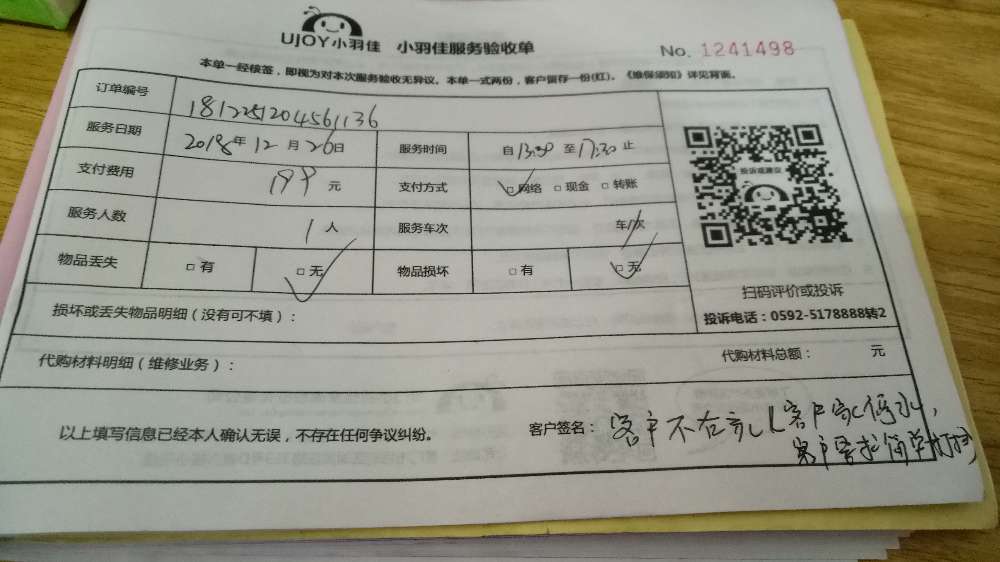 UJOY小羽佳 小羽佳服务验收单
No. 1241498
本单一经核签，即视为对本次服务验收无异议。本单一式两份，客户留存一份(红)。《维保须知》详见背面。
订单编号 1812251204561136
服务日期 2018年12月26日 服务时间 自13:30至17:30止
支付费用 199元 支付方式 □网络 □现金 □转账
服务人数 1人 服务车次 车/次
物品丢失 □有 □无 物品损坏 □有 □无
投诉或建议
扫码评价或投诉
投诉电话：0592-5178888转2
损坏或丢失物品明细（没有可不填）：
代购材料明细（维修业务）： 代购材料总额： 元
以上填写信息已经本人确认无误，不存在任何争议纠纷。 客户签名： 客户不在家 客户家停水，
客户要求简单打扫